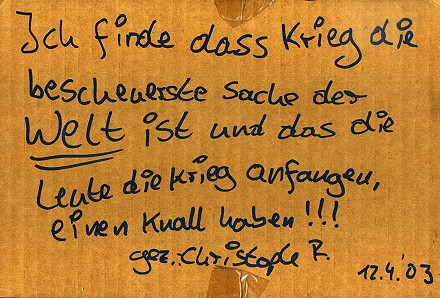 Ich finde dass Krieg die
bescheuerste Sache der
Welt ist und das die
Leute die Krieg anfangen,
einen Knall haben!!!
gez. Christoph R.
12.4.'03